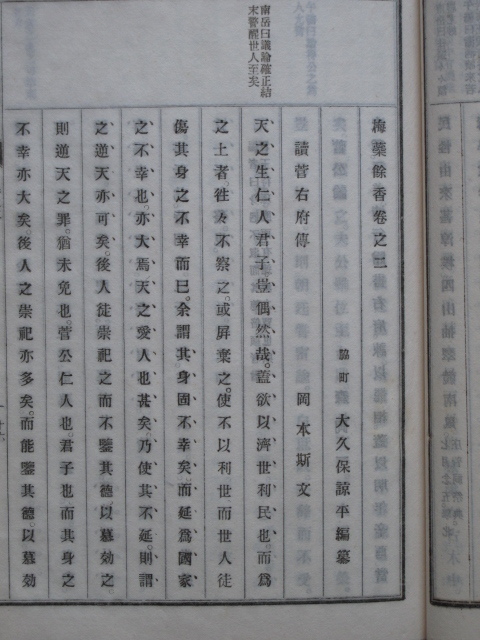 南岳曰議論確正結
末警醒世人至矣
梅藥餘香卷之二
脇町 大久保諒平編纂
讀菅右府傳 岡本斯文
天之生仁人君子豈偶然哉。蓋欲以濟世利民也。而爲
之上者。徃々不察之。或屏棄之。使不以利世而世人徒
傷其身之不幸而已。余謂其身固不幸矣。而延爲國家
之不幸也。亦大焉天之愛人也甚矣乃使其不延。則謂
之逆天亦可矣。後人徒崇祀之而不鑒其德以慕効之
則逆天之罪。猶未免也。菅公仁人也。君子也而其身之
不幸亦大矣。後人之崇祀亦多矣。而能鑒其德。以慕効